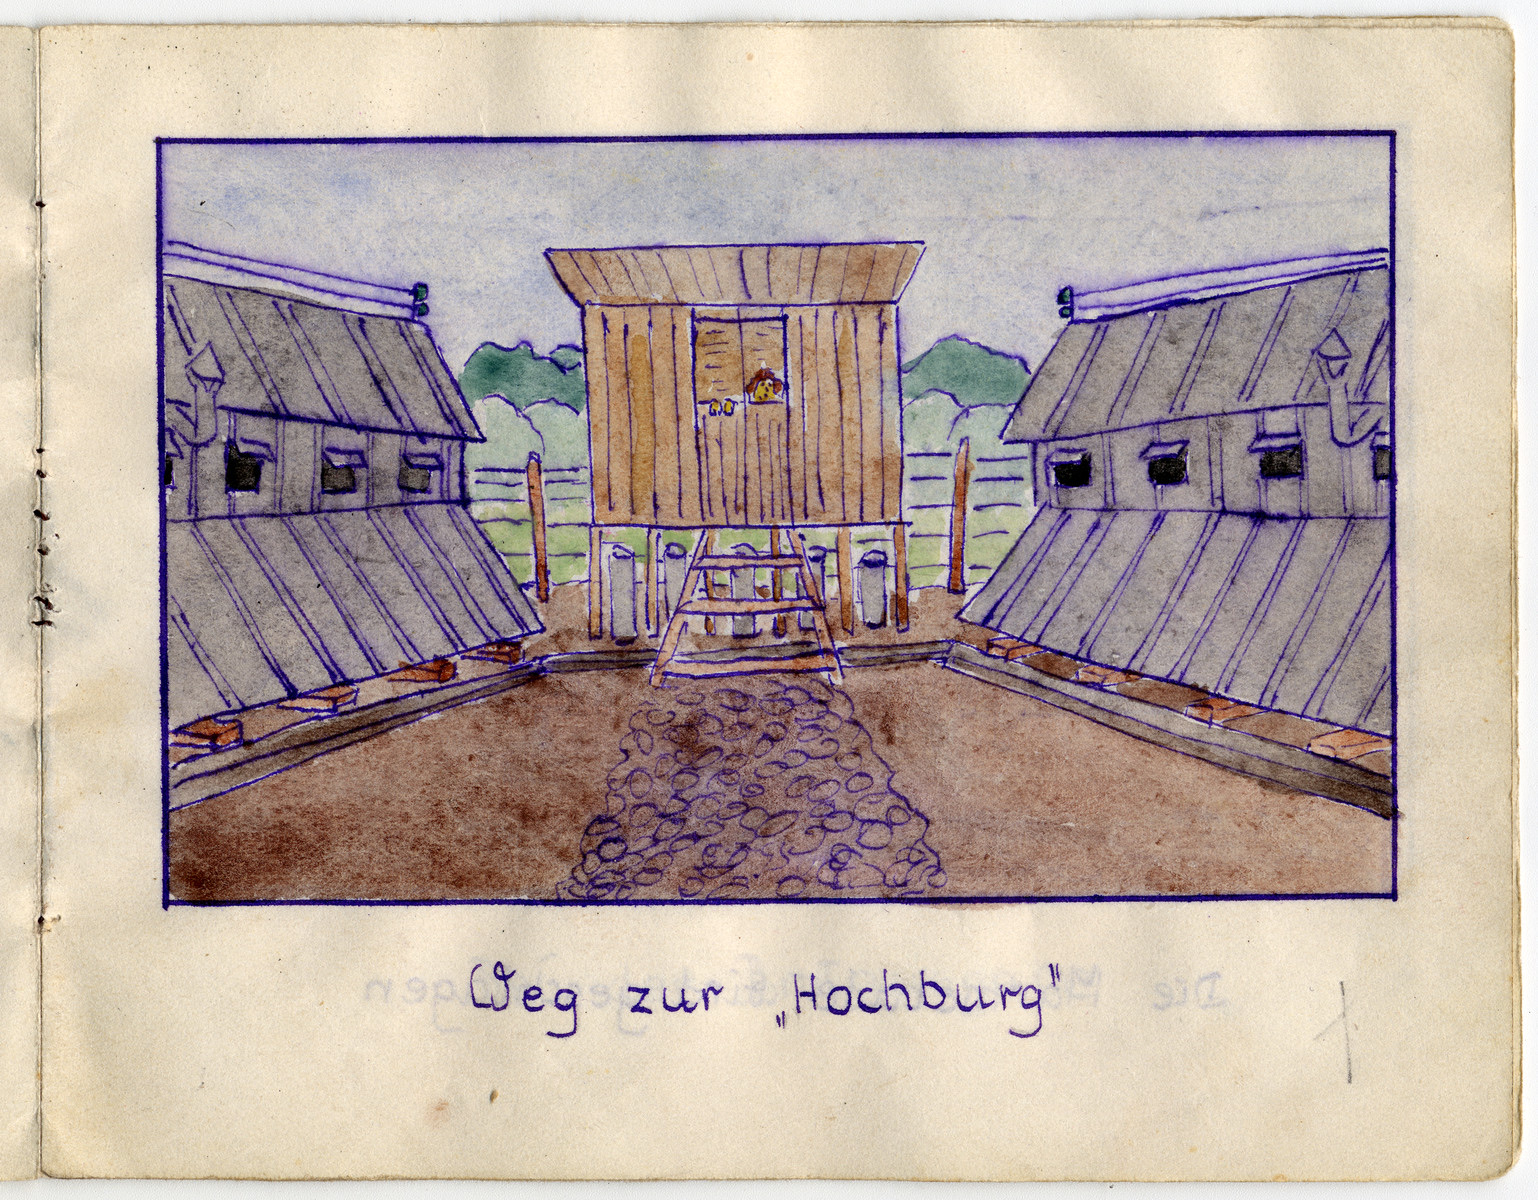 Weg zur „Hochburg"